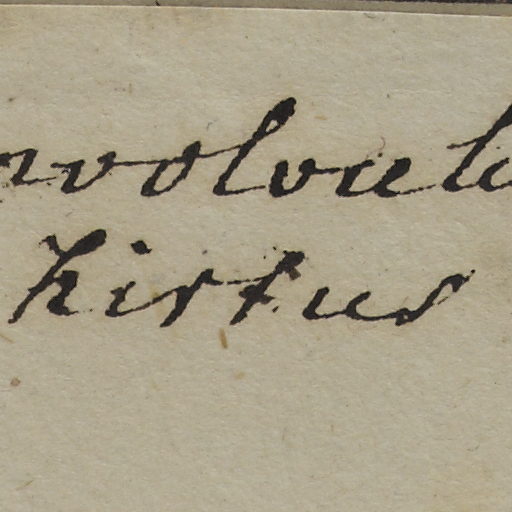 nvolvulu
hirtus